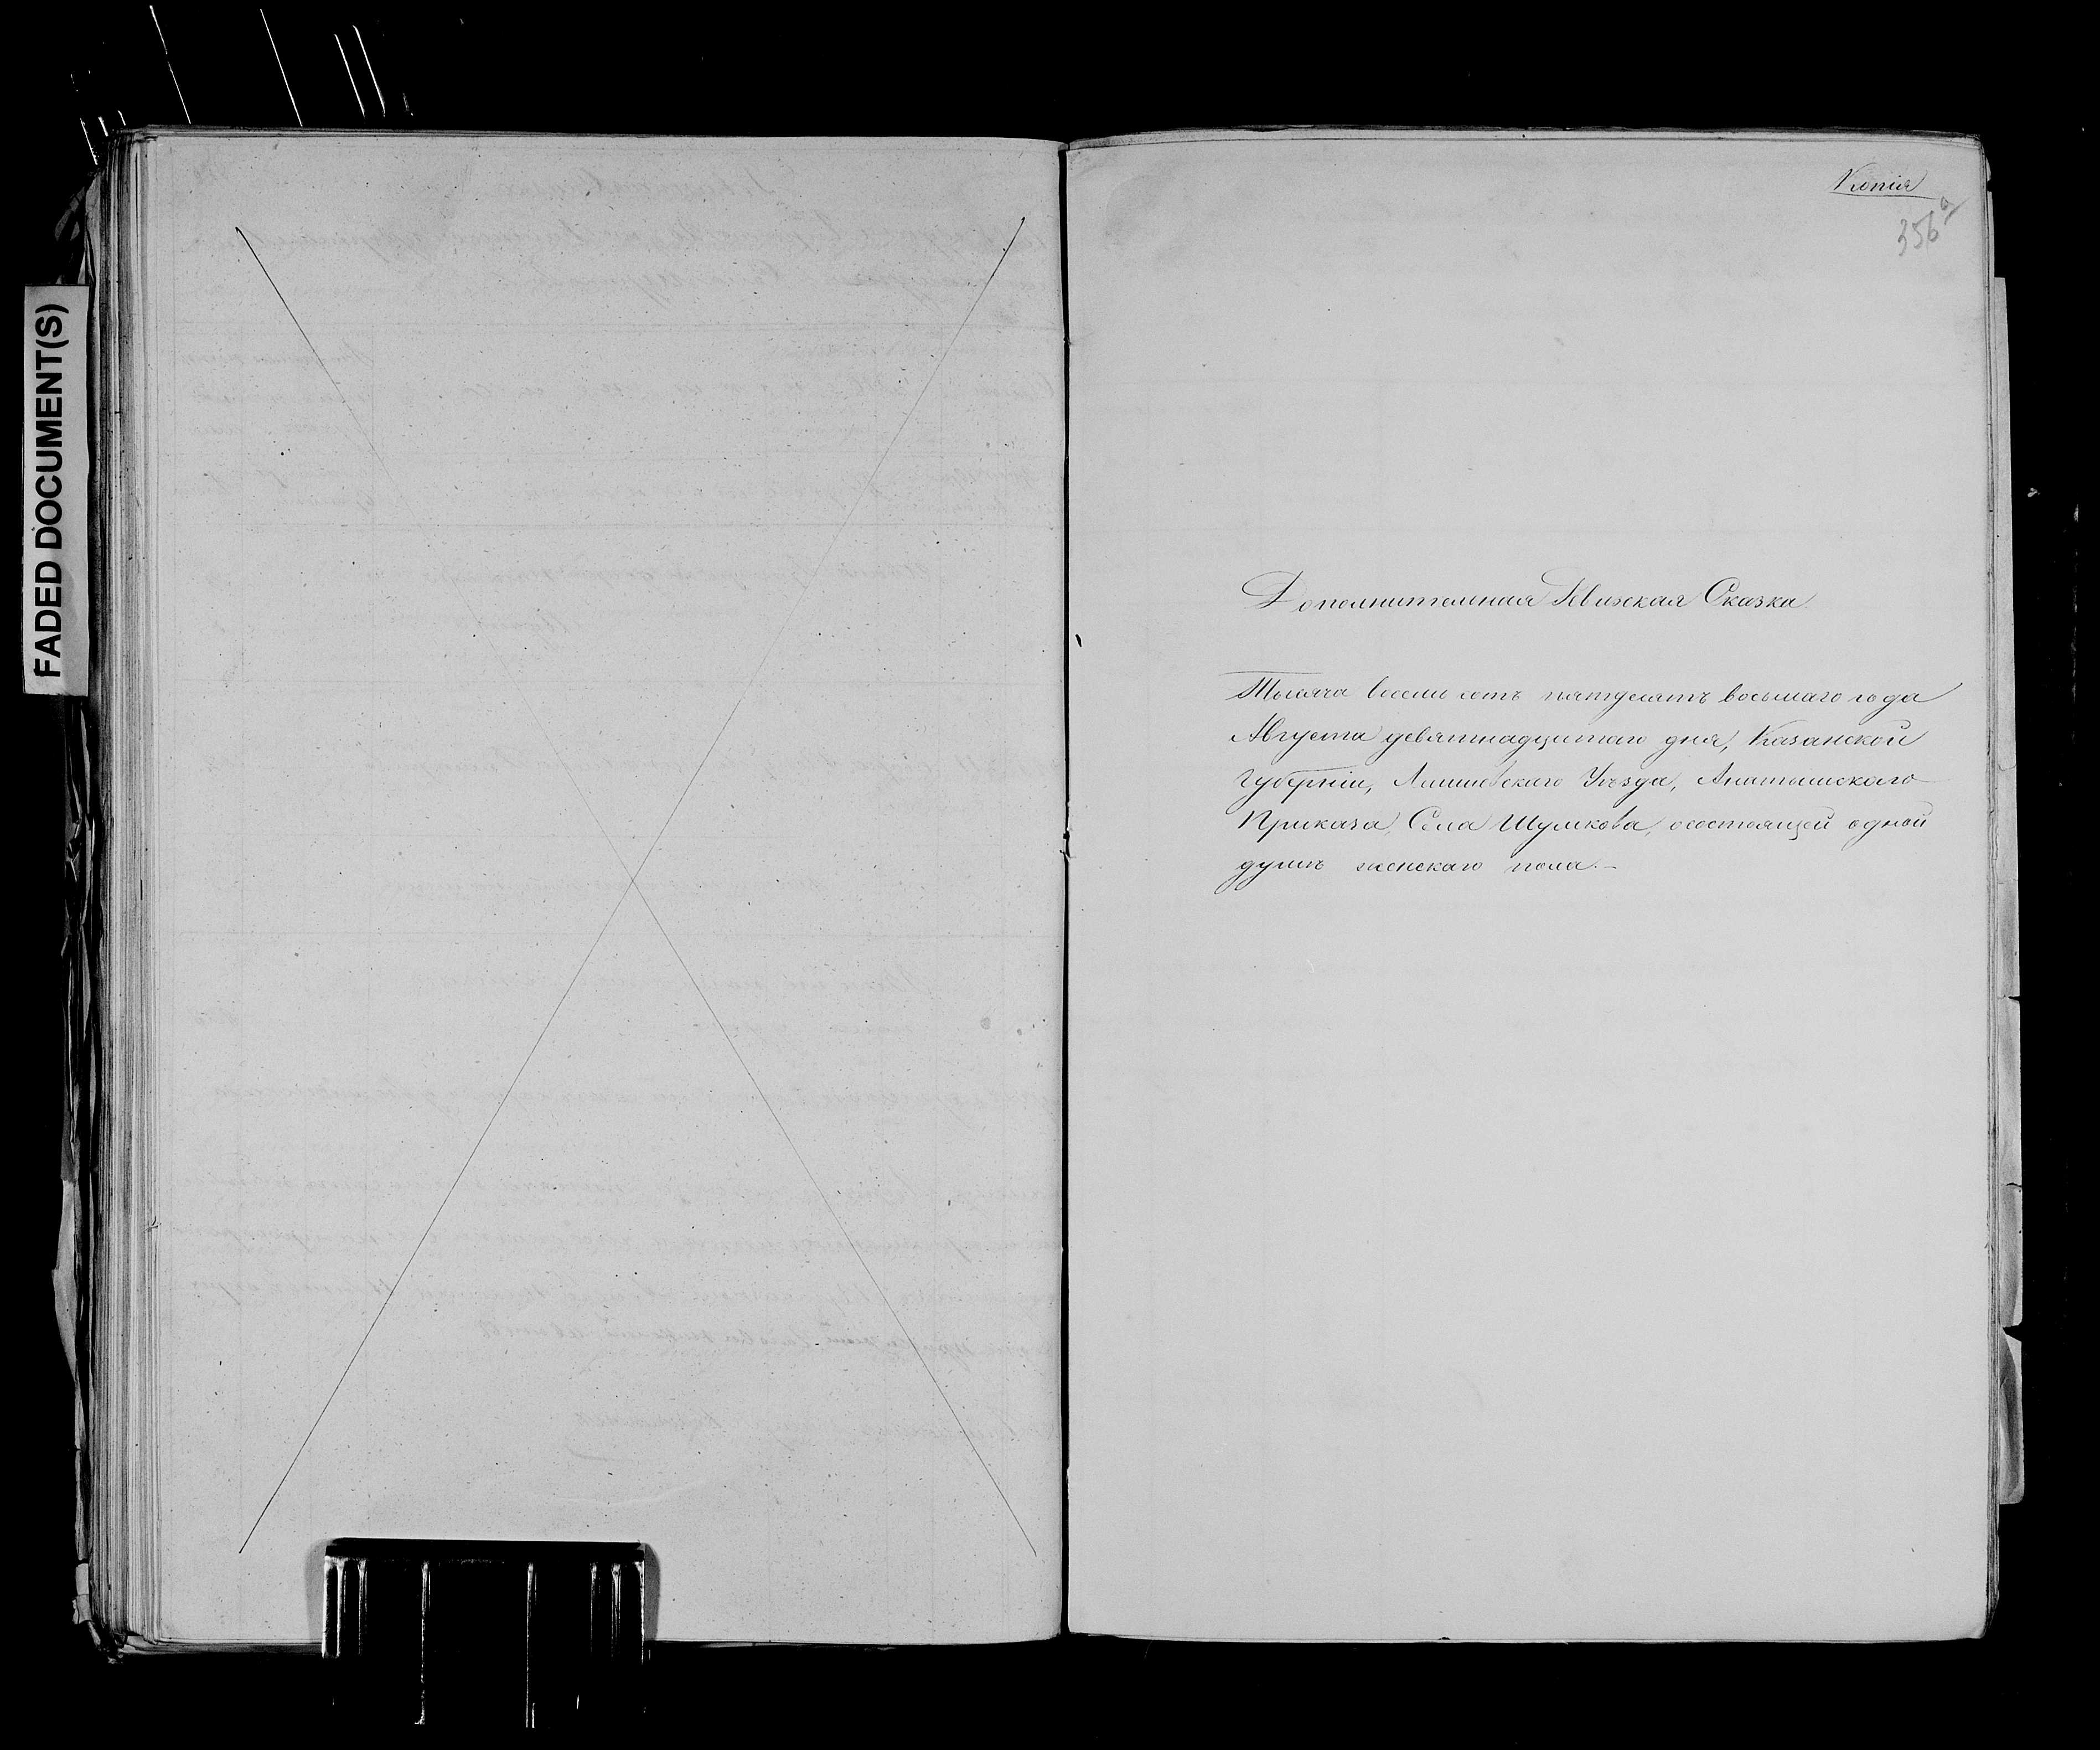 FADED DOCUMENT(S)
Копія
356а
Дополнительная Ревизская Сказка
Тысяча восемь сотъ пятдесятъ восьмаго года
Августа девятнадцатаго дня, Казанской
Губерніи, Лаишевскаго Уѣзда, Анатышскаго
Приказа, Села Шумкова, о состоящей одной
душѣ женскаго пола.—